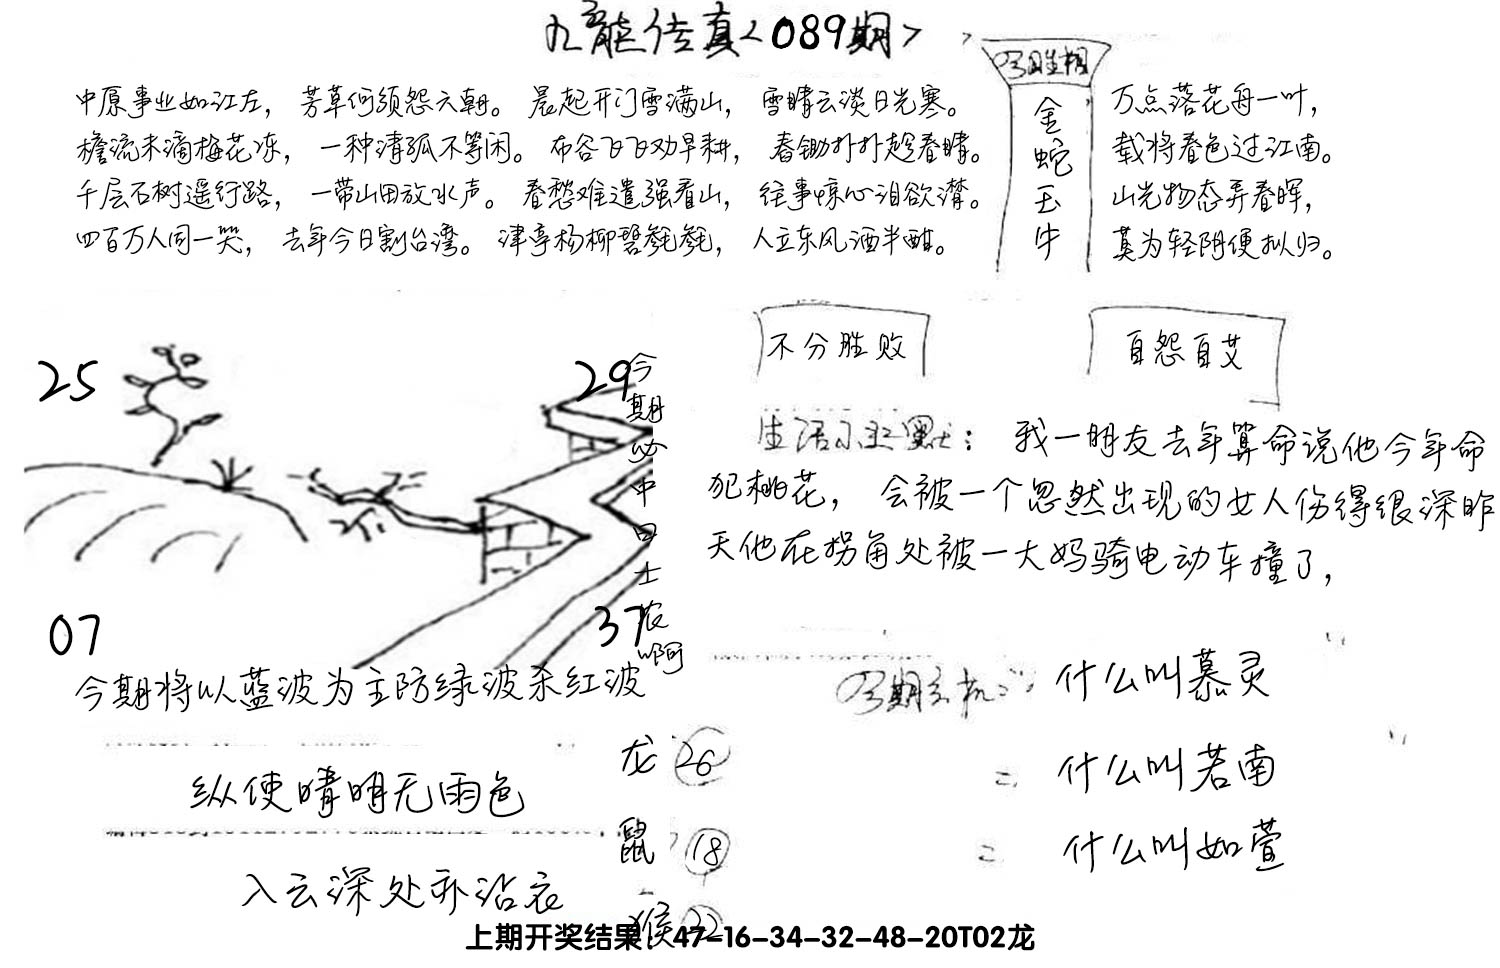 九龙传真<089期>
今期生相
金蛇玉牛
中原事业如江左， 芳草何须怨六朝。 晨起开门雪满山， 雪晴云淡日光寒。
檐流未滴梅花冻， 一种清孤不等闲。 布谷飞飞劝早耕， 春锄扑扑趁春晴。
千层石树遥行路， 一带山田放水声。 春愁难遣强看山， 往事惊心泪欲潸。
四百万人同一哭， 去年今日割台湾。 津亭杨柳碧毵毵， 人立东风酒半酣。
万点落花舟一叶，
载将春色过江南。
山光物态弄春晖，
莫为轻阴便拟归。
不分胜败
自怨自艾
25
29
07
37
今期必中
啊
生活小幽默： 我一朋友去年算命说他今年命
犯桃花， 会被一个忽然出现的女人伤得很深昨
天他在拐角处被一大妈骑电动车撞了，
今期将以蓝波为主防绿波杀红波
纵使晴明无雨色
入云深处亦沾衣
龙 26
鼠 18
猴 22
今期玄机： 什么叫慕灵
= 什么叫若南
= 什么叫如萱
上期开奖结果：47-16-34-32-48-20T02龙